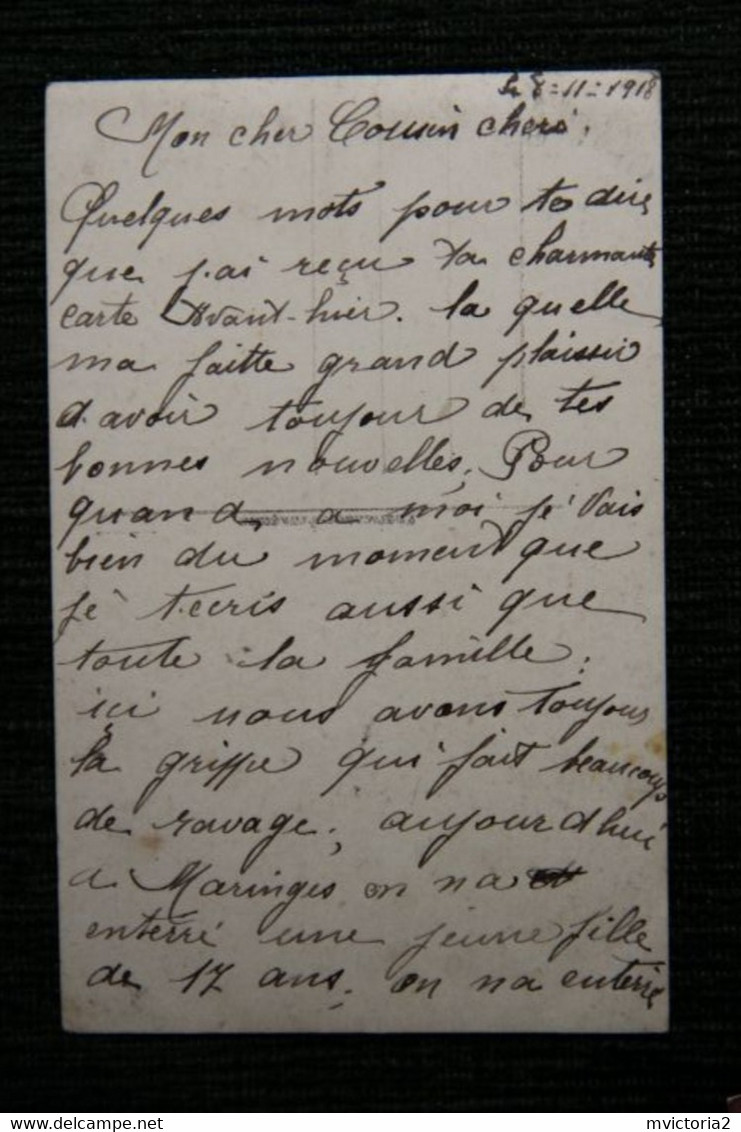 le 8-11-1918
Mon cher Cousin cheri.
Quelques mots pour te dire
que j.ai reçu ta charmante
carte Avant-hier. la quelle
ma faitte grand plaissir
d.avoir toujour de tes
bonnes nouvelles. Pour
quand, a moi je Vais
bien du moment que
je t.ecris aussi que
toute la famille.
ici nous avons toujour
la grippe qui fait beaucoup
de ravage, aujourdhui
a Maringes on na
enterré une jeune fille
de 17 ans. on na enterré
https://www.delcampe.net
mvictoria2